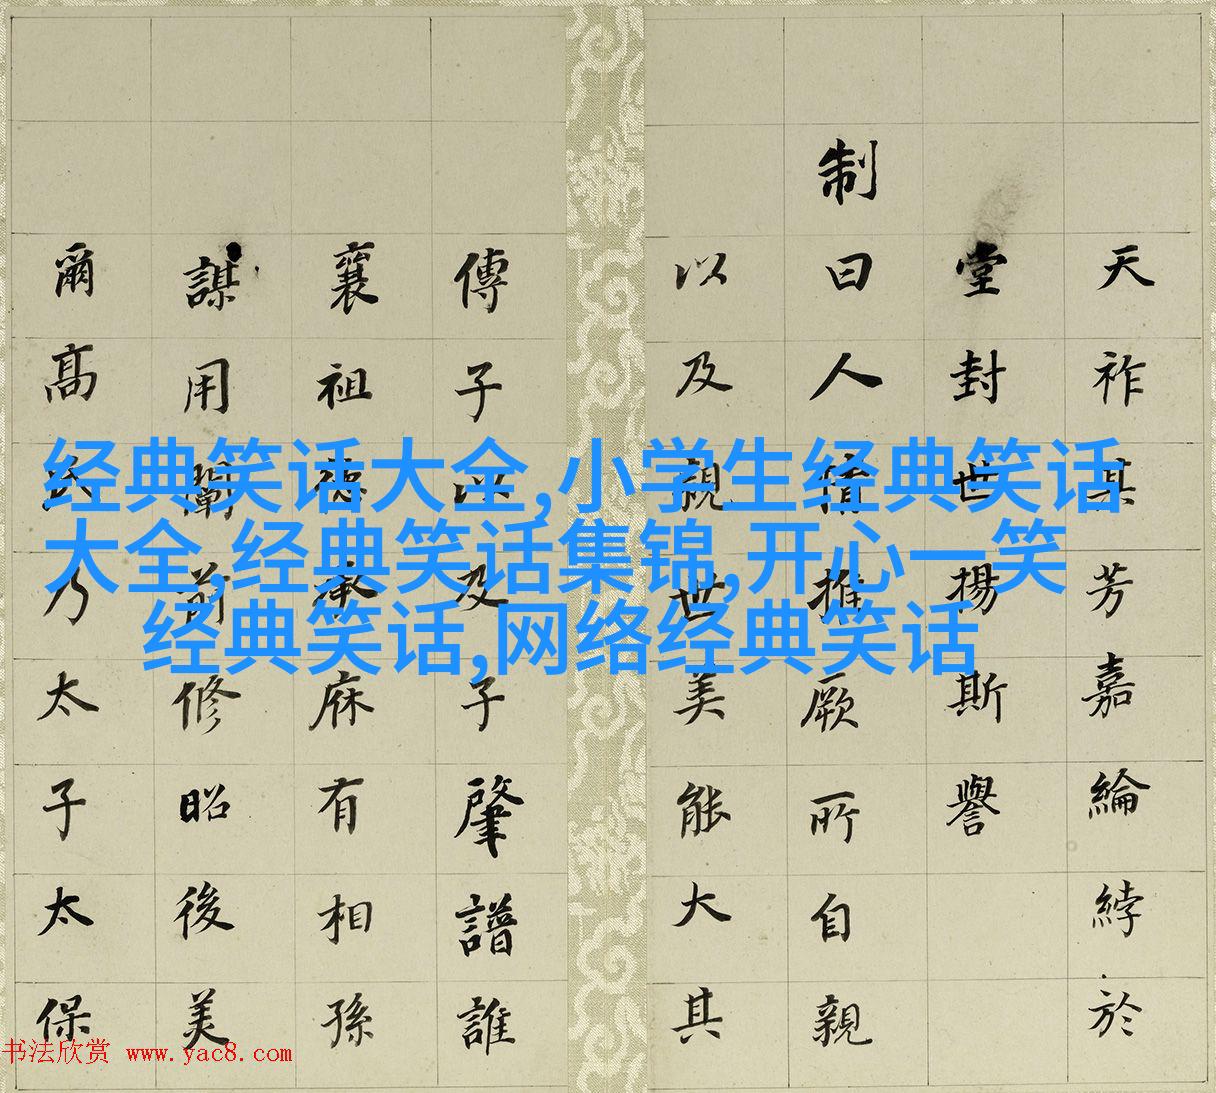 天祚其芳嘉綸綍於
堂封世揚斯譽
制曰人情推厥所自親
以及親世美能大其
傳子以及子肇譜誰
襄祖德承庥有相孫
謀用闡前修昭後美
爾高氏乃太子太保
经典笑话大全,小学生经典笑话
大全,经典笑话集锦,开心一笑
经典笑话,网络经典笑话
书法欣赏 www.yac8.com